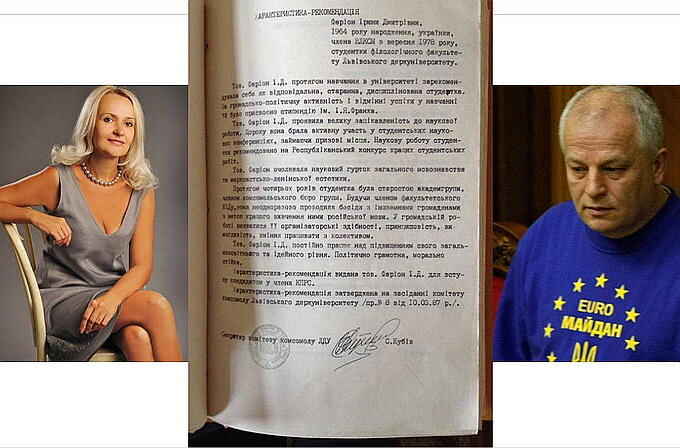 ХАРАКТЕРИСТИКА-РЕКОМЕНДАЦІЯ
Фаріон Ірини Дмитрівни,
1964 року народження, українки,
члена ВЛКСМ з вересня 1978 року,
студентки філологічного факульте-
ту Львівського держуніверситету.
Тов. Фаріон І.Д. протягом навчання в університеті зарекомен-
дувала себе як відповідальна, старанна, дисциплінована студентка.
За громадсько-політичну активність і відмінні успіхи у навчанні
їй було присвоєно стипендію ім. І.Я.Франка.
Тов. Фаріон І.Д. проявила велику зацікавленість до наукової
роботи. Щороку вона брала активну участь у студентських науко-
вих конференціях, займаючи призові місця. Наукову роботу студен-
тки рекомендовано на Республіканський конкурс кращих студентських
робіт.
Тов. Фаріон очолювала науковий гурток загального мовознавства
та марксистсько-ленінської естетики.
Протягом чотирьох років студентка була старостою академгрупи,
членом комсомольського бюро групи. Будучи членом факультетського
КІДу, вона неодноразово проводила бесіди з іноземними громадянами
з метою кращого вивчення ними російської мови. У громадській ро-
боті виявилися її організаторські здібності, принциповість, ви-
могливість, вміння працювати з колективом.
Тов. Фаріон І.Д. постійно працює над підвищенням свого загаль-
ноосвітнього та ідейного рівня. Політично грамотна, морально
стійка.
Характеристика-рекомендація видана тов. Фаріон І.Д. для всту-
пу кандидатом у члени КПРС.
Характеристика-рекомендація затверджена на засіданні комітету
комсомолу Львівського держуніверситету /пр.№ 8 від 10.03.87 р./.
Секретар комітету комсомолу ЛДУ
С.Кубів
EURO
МАЙДАН